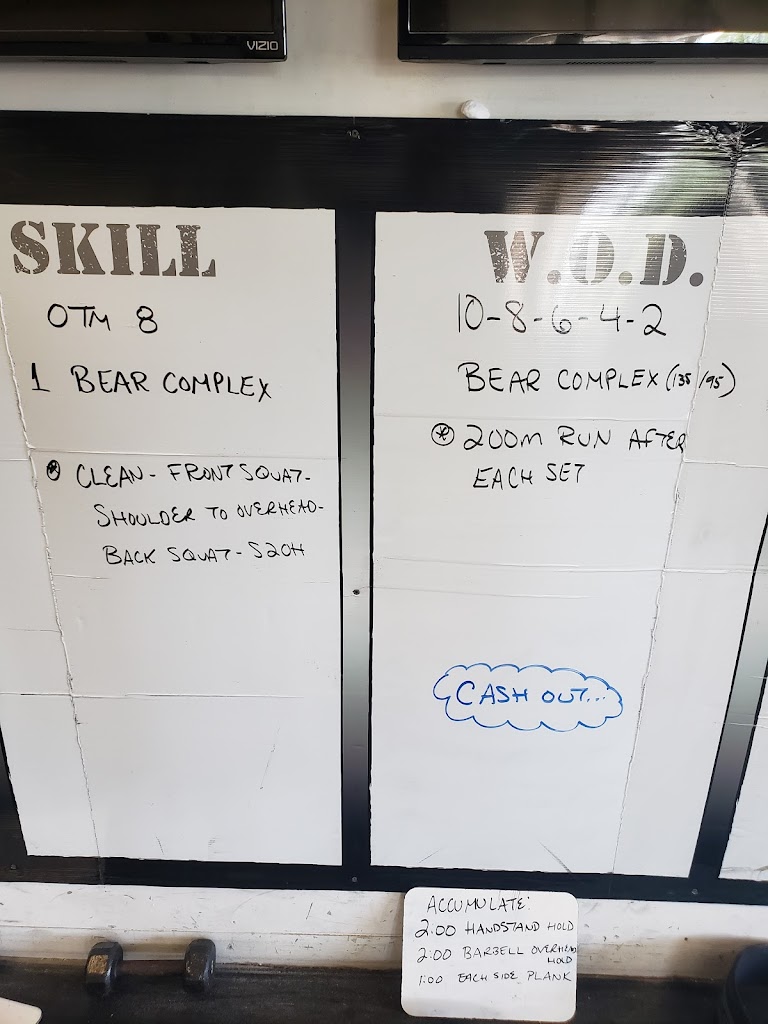 VIZIO
SKILL
OTM 8
1 BEAR COMPLEX
* CLEAN - FRONT SQUAT-
SHOULDER TO OVERHEAD-
BACK SQUAT - S2OH
W.O.D.
10-8-6-4-2
BEAR COMPLEX (135/95)
* 200M RUN AFTER
EACH SET
CASH OUT...
ACCUMULATE:
2:00 HANDSTAND HOLD
2:00 BARBELL OVERHEAD
HOLD
1:00 EACH SIDE PLANK